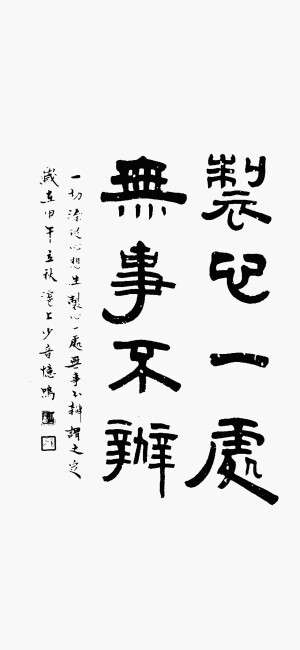 製心一處
無事不辦
一切從心想生製心一處無事不辦謂之定
歲在甲午立秋滬上少奇憶鳴